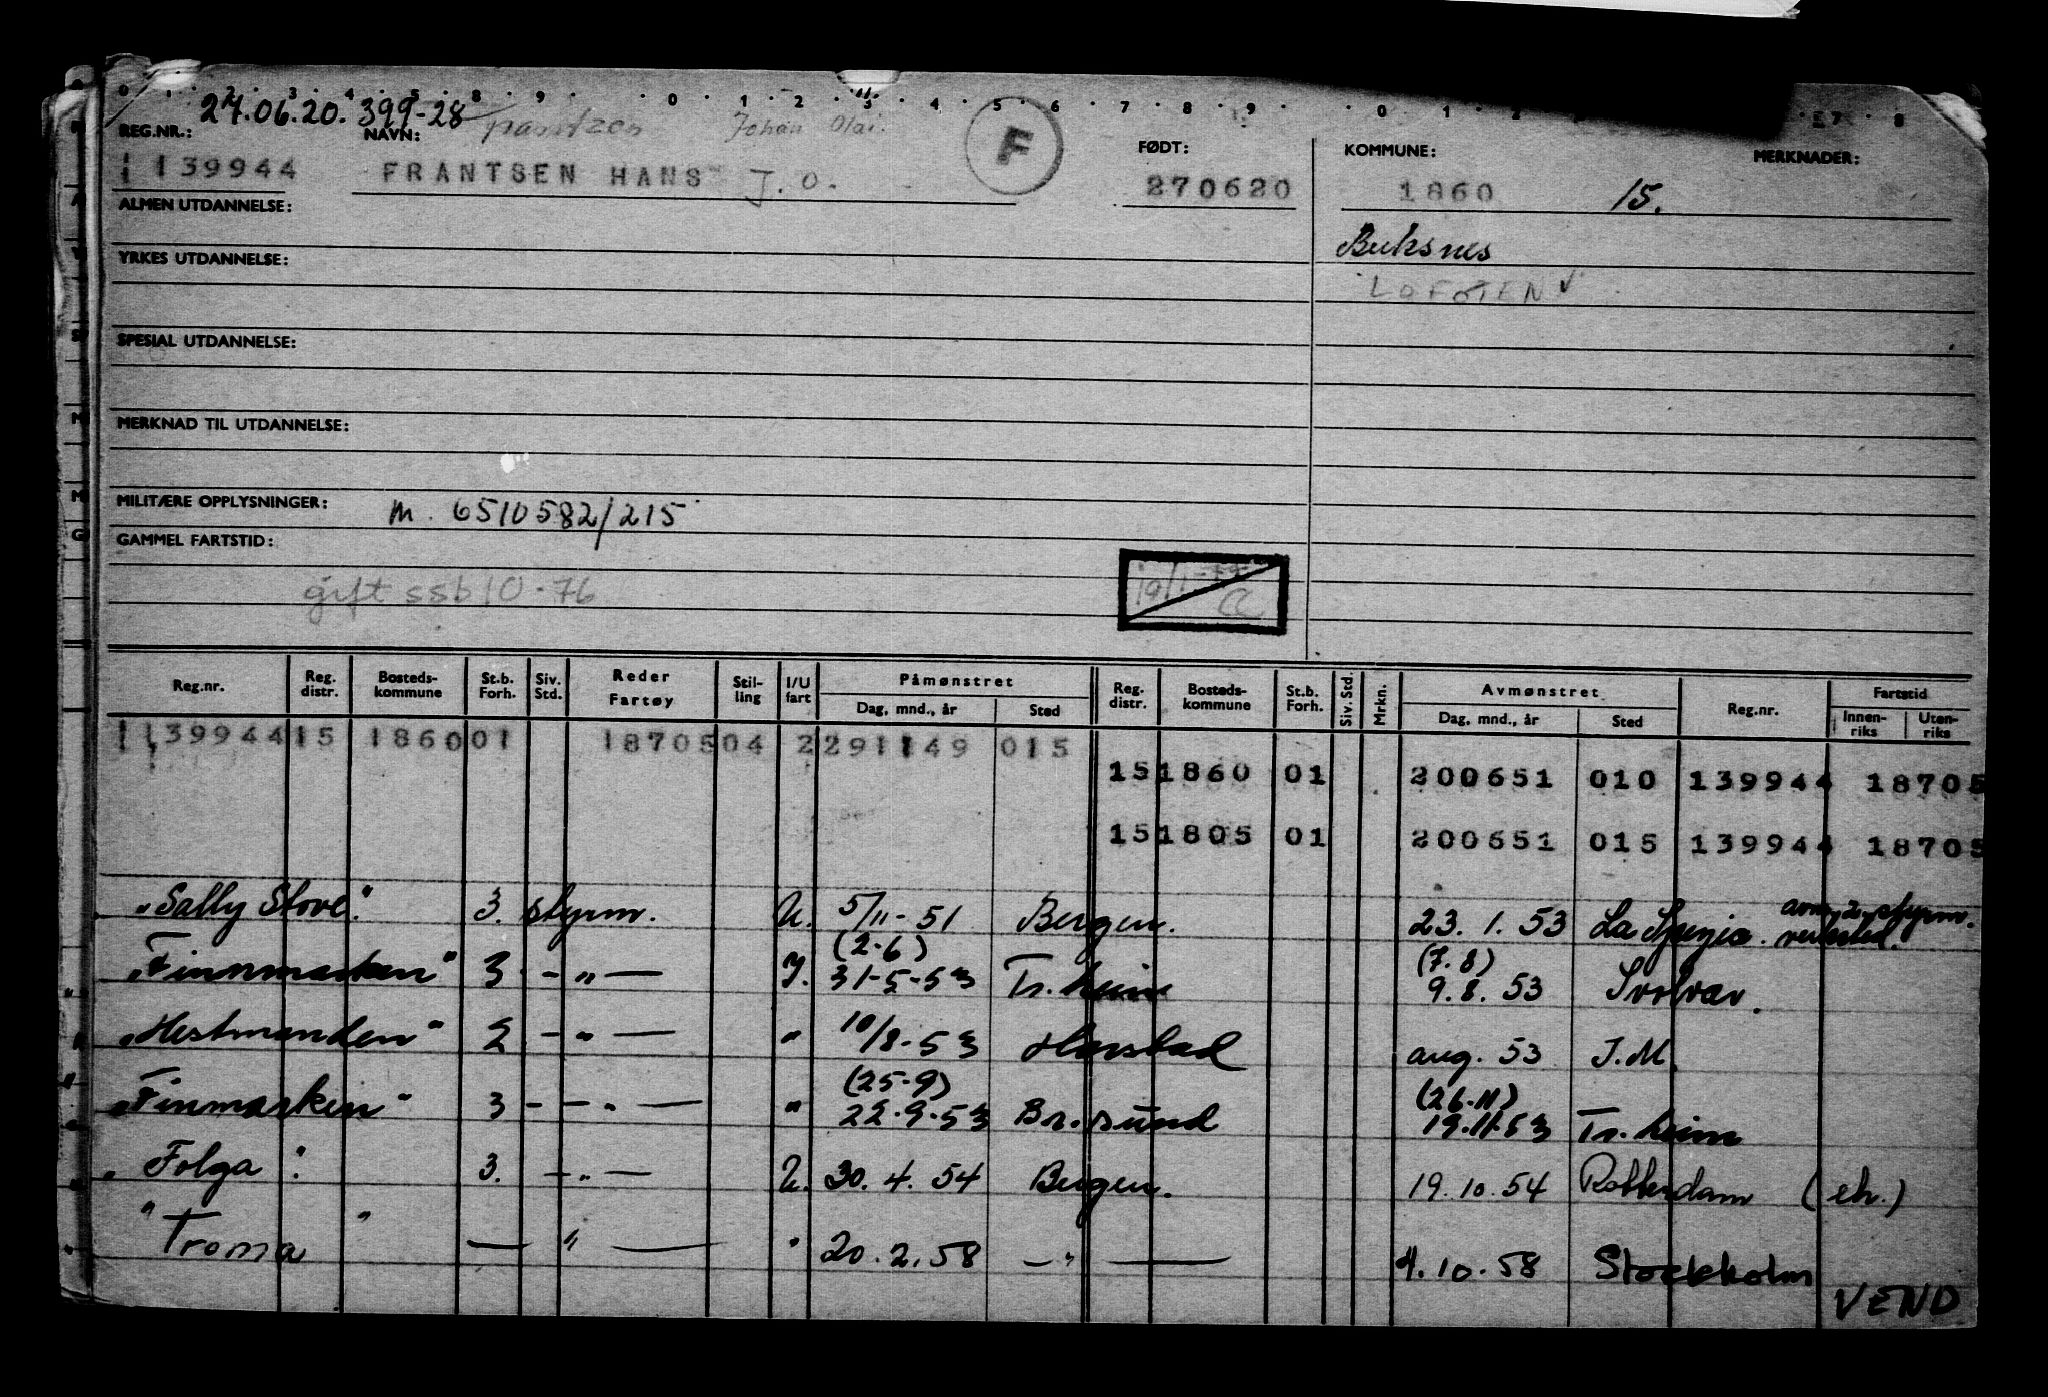 27.06.20. 399-28 Frantzen Johan Olai.
REG.NR.: NAVN: F FØDT: KOMMUNE: MERKNADER:
139944 FRANTSEN HANS J. O. 270620 1860 15.
ALMEN UTDANNELSE:
Buksnes
YRKES UTDANNELSE:
LOFOTEN
SPESIAL UTDANNELSE:
MERKNAD TIL UTDANNELSE:
MILITÆRE OPPLYSNINGER: M. 6510582/215
GAMMEL FARTSTID:
gift ssb 10-76
19/1-79
Reg.nr. Reg. distr. Bosteds-kommune St.b. Forh. Siv. Std. Reder Fartøy Stil-ling I/U fart Påmønstret Dag, mnd., år Sted Reg. distr. Bosteds-kommune St.b. Forh. Siv. Std. Mrkn. Avmønstret Dag, mnd., år Sted Reg.nr. Fartstid Innen-riks Uten-riks
139944 15 1860 01 18705 04 2 291149 015
15 1860 01 200651 010 139944 18705
15 1805 01 200651 015 139944 18705
"Sally Stove" 3. styrm. U. 5/11-51 Bergen. 23. 1. 53 La Spezia. avm. 2. styrm. verksted.
"Finnmarken" 3 - " - I. (2-6) 31-5-53 Tr.heim (7.8) 9.8. 53 Svolvær.
"Hestmanden" 2 - " - " 10/8-53 Harstad aug. 53 I.M.
"Finmarken" 3 - - " - " (25-9) 22-9-53 Br.sund (26-11) 19-11-53 Tr.heim
"Folga" 3. - " - U. 30. 4. 54 Bergen. 19. 10. 54 Rotterdam (eh.)
"Troma" - " - " 20. 2. 58 - " - 4. 10. 58 Stockholm
VEND